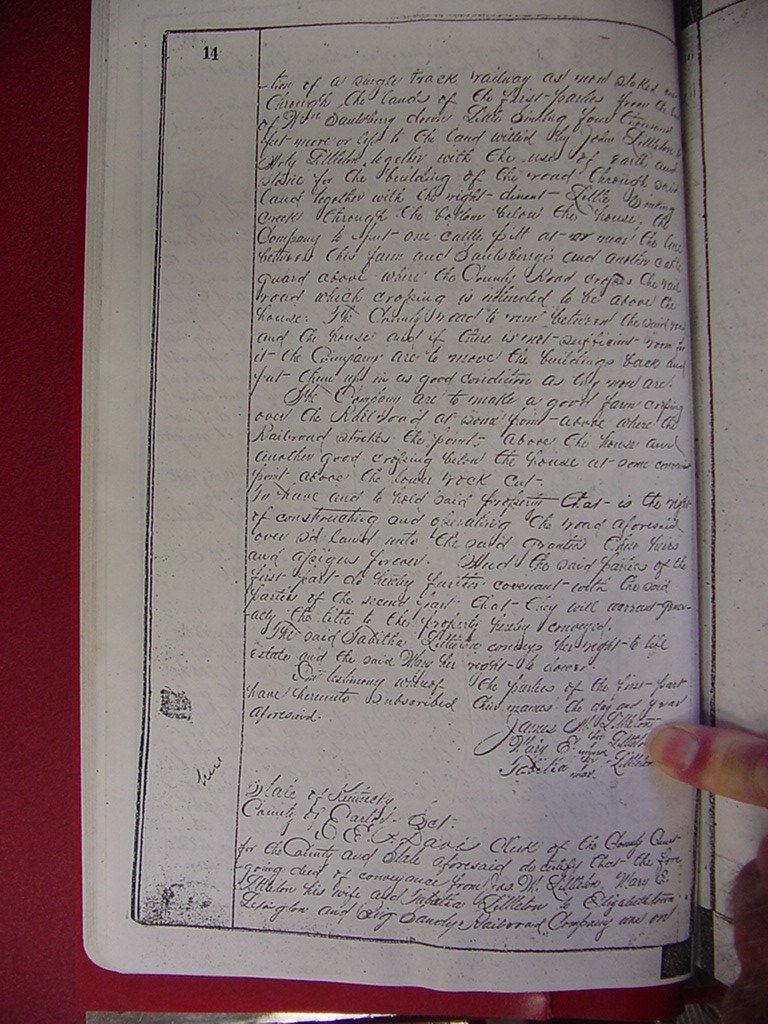 14
-tion of a single track railway as now staked
through the lands of the first parties from the
of Wm Saulsberry down Little Sinking four thousand
feet more or less to the land willed by John Littleton to
Littleton, together with the use of earth and
stone for the building of the road through said
land together with the right - divert - Little Sinking
creek through the bottom below the house, the
Company to put - one cattle pitt at - or near the line
between this farm and Saulsberry's and another cattle
guard above where the County Road crosses the rail
road which crossing is intended to be above the
house. The County road to run between the said
and the house and if there is not - sufficient room for
it - the Company are to move the buildings back and
put - them up in as good condition as they now are.
The Company are to make a good farm crossing
over the Railroad at some point - above where the
Railroad strikes the point - above the house and
another good crossing below the house at - some
point above the lower rock cut -
To have and to hold said property that - is the right
of constructing and operating the road aforesaid
over sd land unto the said grantees their heirs
and assigns forever. And the said parties of the
first part do hereby further covenant - with the said
parties of the second part - that - they will warrant -
the title to the property hereby conveyed.
The said Tabitha Littleton conveys her right - to life
estate and the said Mary her right - to dower.
In testimony whereof the parties of the first - part
have hereunto subscribed their names the day and year
aforesaid.
James M. Littleton
Mary E her mark Littleton
Tabitha her mark Littleton
State of Kentucky
County of Carter Sct.
Davis Clerk of the County Court
for the County and State aforesaid do certify that the fore
-going deed of conveyance from Jas. M. Littleton, Mary E.
Littleton his wife and Tabitha Littleton to Elizabethtown
Lexington and Big Sandy Railroad Company was on